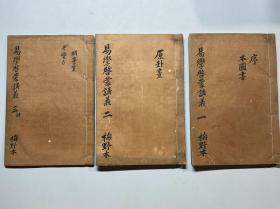 序
本圖書
易學啓蒙講義 一
梅野本
原卦畫
易學啓蒙講義 二
梅野本
明蓍策
考變占
易學啓蒙講義 三四
梅野本